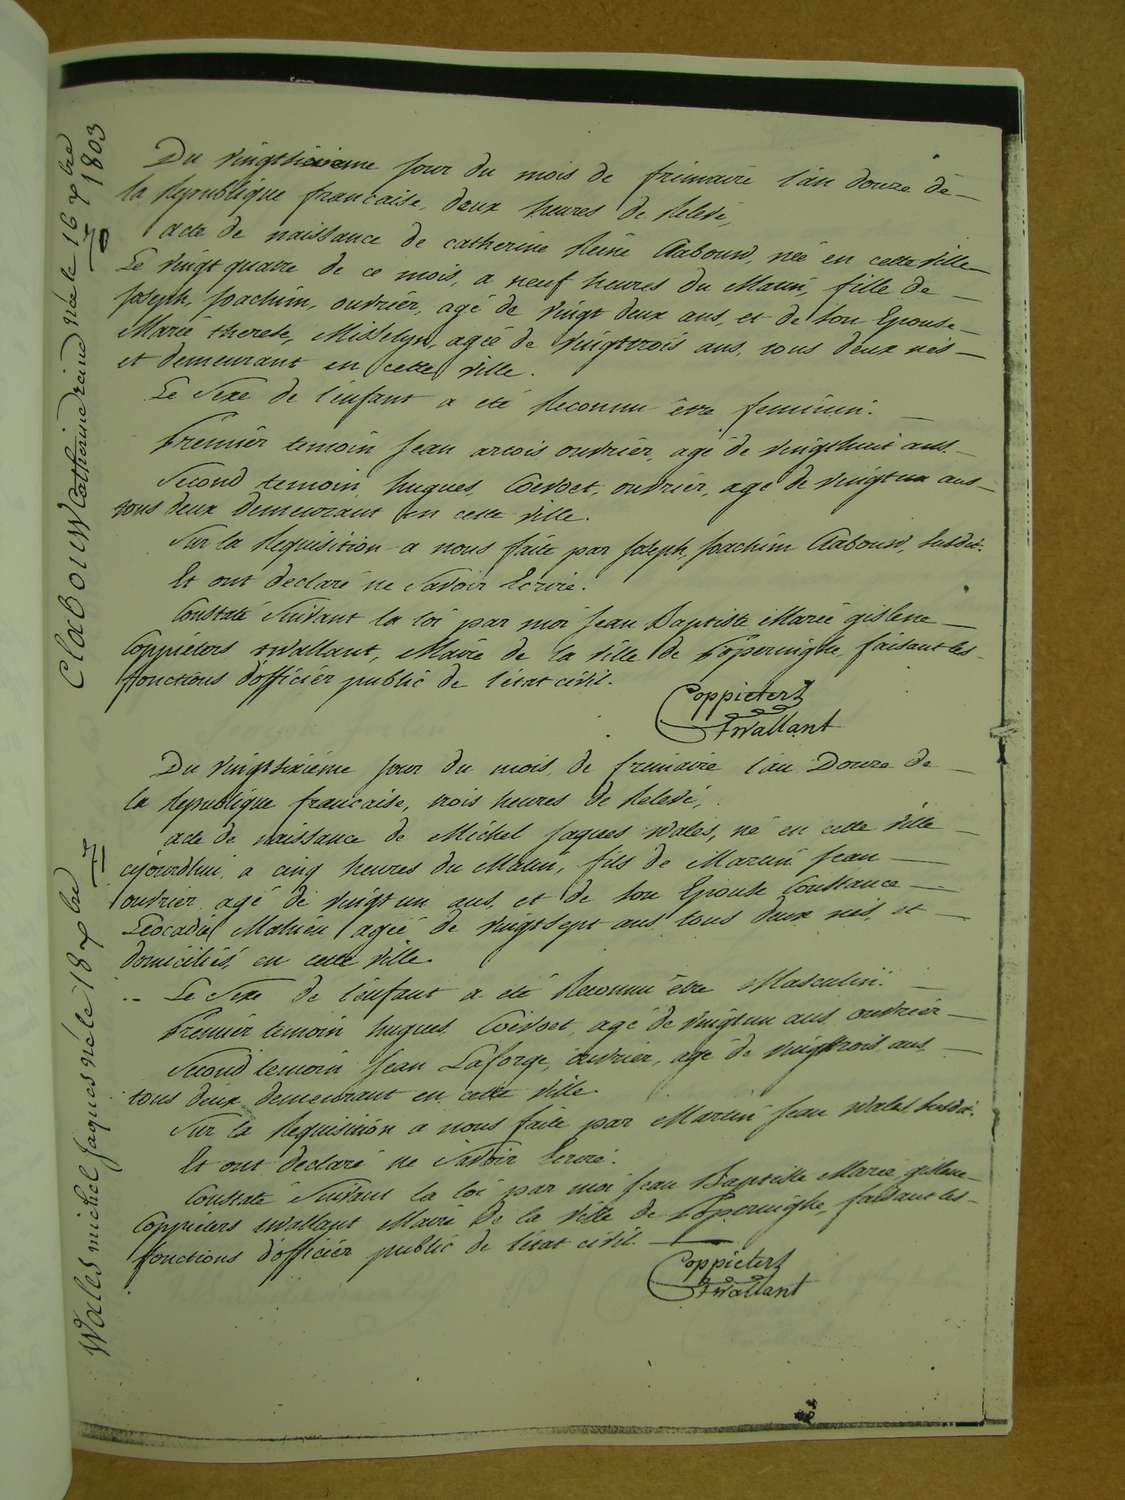 Clabouw Catherine reine née le 16 xbre 1803
Du vingtsixieme jour du mois de frimaire l'an douze de
la Republique francaise, deux heures de Relevé,
acte de naissance de catherine Reine Clabouw, née en cette ville
Le vingt quatre de ce mois, a neuf heures du Matin, fille de
Joseph Joachim, ouvrier, agé de vingt deux ans, et de son Epouse
Marie therese, Misselyn, agée de vingttrois ans, tous deux nés
et demeurant en cette ville.
Le Sexe de l'enfant a eté Reconnu être feminin.
Premier temoin Jean arcois ouvrier, agé de vingthuit ans.
Second temoin hugues, Coevoet, ouvrier, agé de vingt un ans
tous deux demeurant en cette ville.
Sur la Requisition a nous faite par Joseph Joachim Clabouw, Susdit.
Et ont declaré ne Savoir Ecrire.
Constaté Suivant la loi par moi Jean Baptiste Marie gislene
Coppieters twallant, Maire de la ville de Poperinghe, faisant les
fonctions d'officier public de l'etat civil.
Coppieters
Twallant
Wales michel Jaques né le 18 xbre
Du vingtsixième jour du mois de frimaire l'an Douze de
la Republique francaise, trois heures de Relevé,
acte de naissance de Michel Jaques Wales, né en cette ville
cejourdhui a cinq heures du Matin, fils de Martin Jean
ouvrier agé de vingt un ans, et de son Epouse Constance
Léocadie Mahieu agée de vingtsept ans tous deux nés, et
domiciliés en cette ville.
Le Sexe de l'enfant a eté Reconnu être Masculin.
Premier temoin hugues Coevoet, agé de vingtun ans ouvrier
Second temoin Jean Laforge, ouvrier, agé de vingttrois ans
tous deux demeurant en cette ville.
Sur la Requisition a nous faite par Martin Jean Wales, Susdit.
Et ont declaré ne Savoir Ecrire.
Constaté Suivant la loi par moi Jean Baptiste Marie gislene
Coppieters twallant Maire De la ville de Poperinghe, faisant les
fonctions d'officier public de l'etat civil.
Coppieters
Twallant